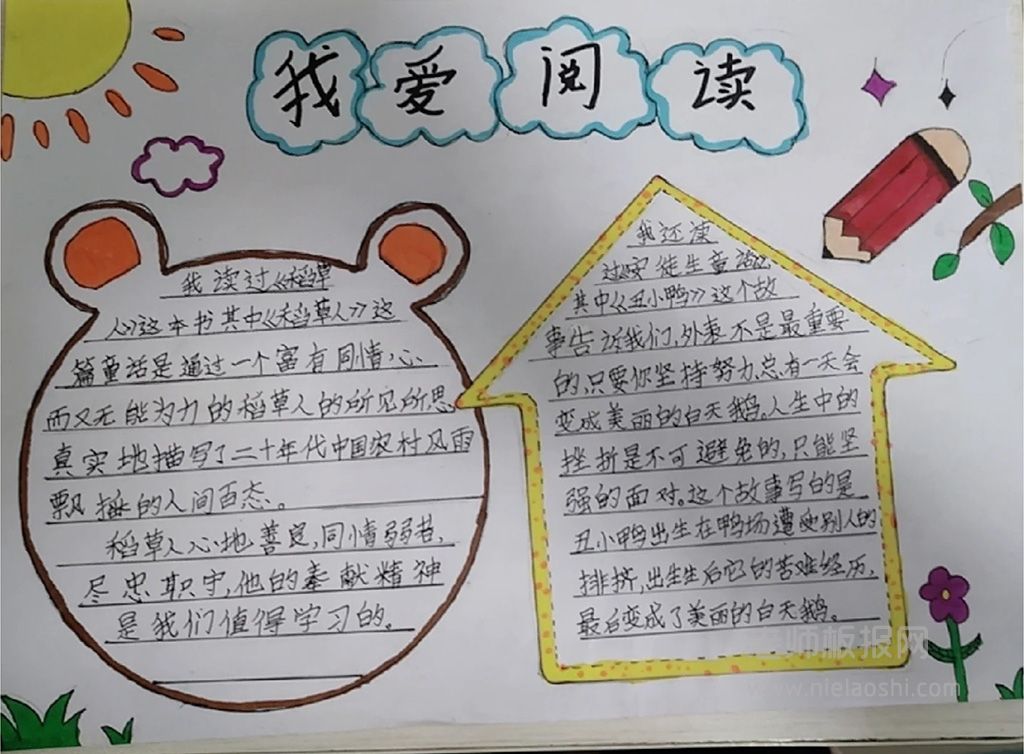 我爱阅读
我读过《稻草
人》这本书其中《稻草人》这
篇童话是通过一个富有同情心
而又无能为力的稻草人的所见所思
真实地描写了二十年代中国农村风雨
飘摇的人间百态。
稻草人心地善良,同情弱者,
尽忠职守,他的奉献精神
是我们值得学习的。
我还读
过安徒生童话
其中《丑小鸭》这个故
事告诉我们,外表不是最重要
的,只要你坚持努力,总有一天会
变成美丽的白天鹅。人生中的
挫折是不可避免的,只能坚
强的面对。这个故事写的是
丑小鸭出生在鸭场遭受别人的
排挤,出生后它的苦难经历,
最后变成了美丽的白天鹅。
老师板报网
www.nielaoshi.com